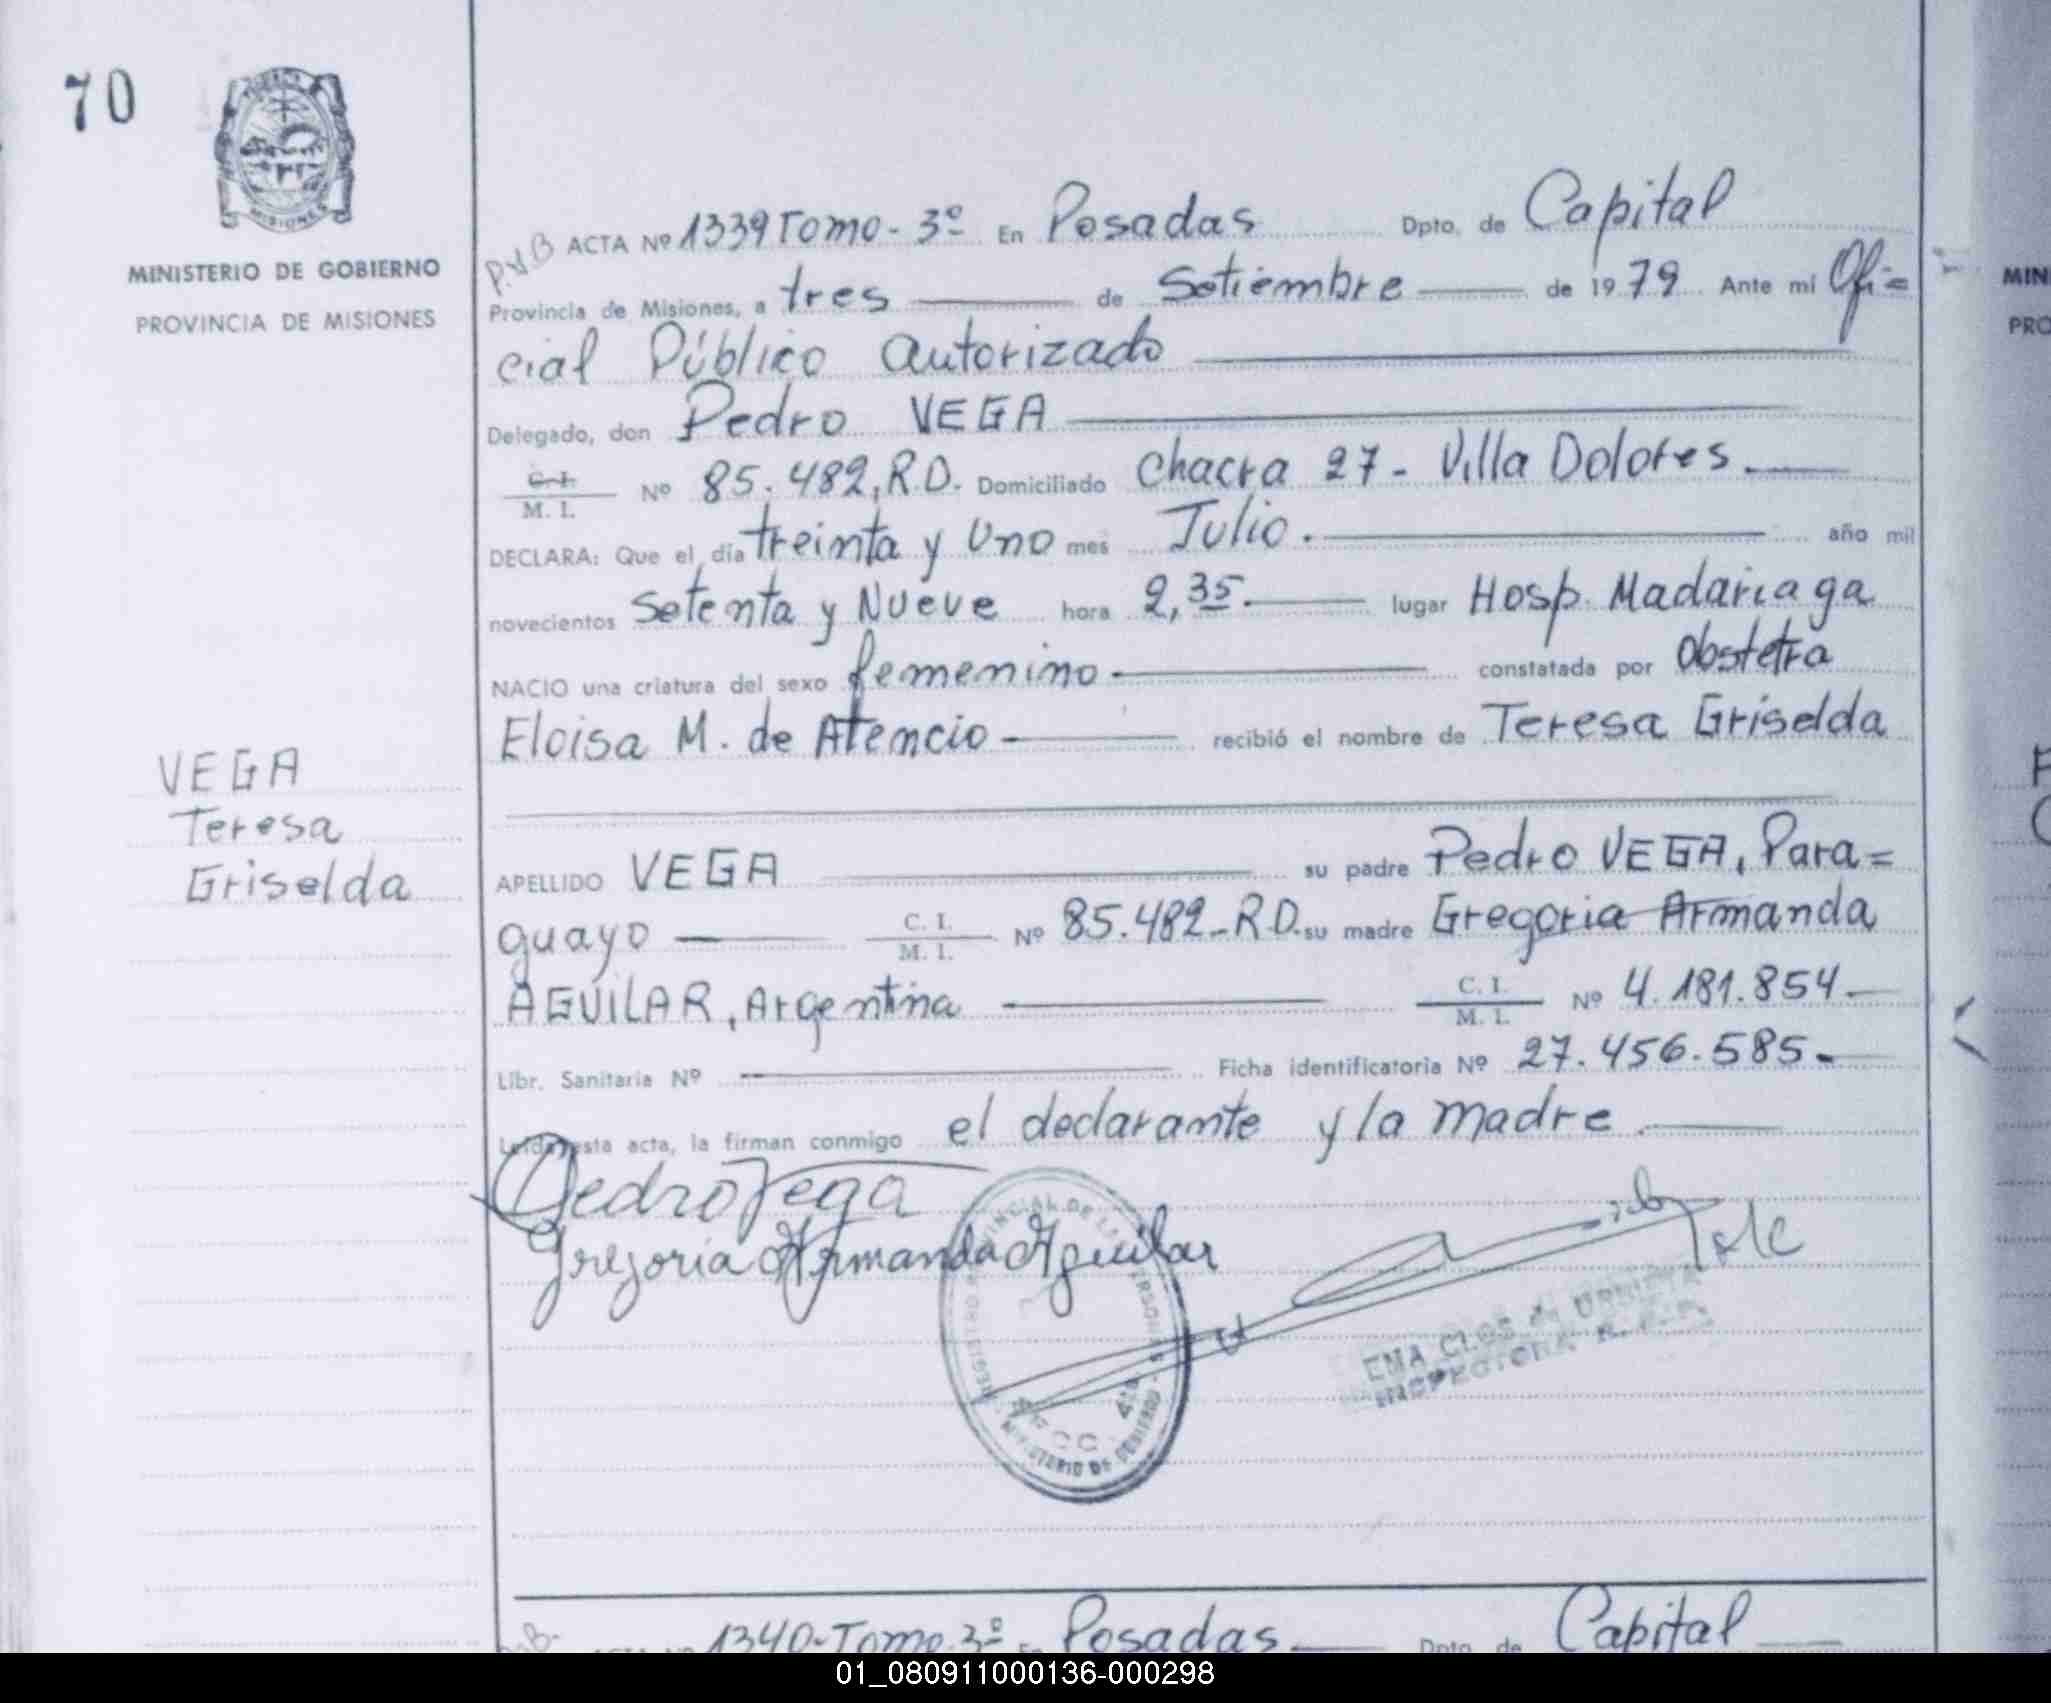 70
MISIONES
MINISTERIO DE GOBIERNO
PROVINCIA DE MISIONES
ACTA Nº 1339 Tomo - 3º En Posadas Dpto. de Capital
Provincia de Misiones, a tres de Setiembre de 1979 Ante mi Ofi=
cial Público autorizado
Delegado, don Pedro VEGA
C. I.
M. I. Nº 85.482, R.D. Domiciliado Chacra 27 - Villa Dolores.
DECLARA: Que el día treinta y Uno mes Julio. año mil
novecientos Setenta y Nueve hora 2,35. lugar Hosp. Madariaga
NACIO una criatura del sexo femenino constatada por Obstetra
Eloisa M. de Atencio recibió el nombre de Teresa Griselda
VEGA
Teresa
Griselda
APELLIDO VEGA su padre Pedro VEGA, Para=
guayo C. I. M. I. Nº 85.482-R.D. su madre Gregoria Armanda
AGUILAR, Argentina C. I. M. I. Nº 4.181.854.
Libr. Sanitaria Nº Ficha identificatoria Nº 27.456.585.
Leída esta acta, la firman conmigo el declarante y la madre.
Pedro Vega
Gregoria Armanda Aguilar
MINISTERIO DE GOBIERNO
EMA CLOS de URRUTIA
INSPECTORA
1340-Tomo 3º En Posadas Dpto. de Capital
MIN
PRO
01_080911000136-000298